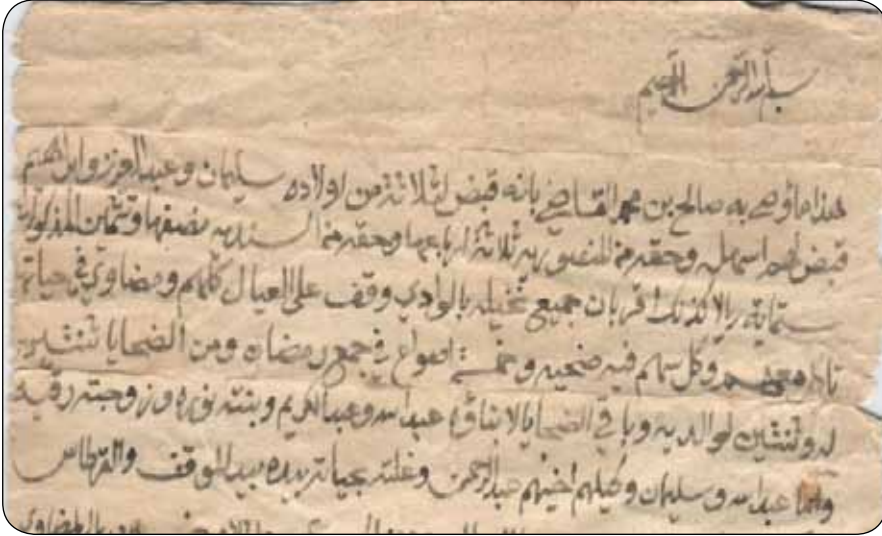 بسم الله الرحمن الرحيم
هذا ما وصى به صالح بن محمد القاضي بانه قبض لثلاثة من اولاده سليمان وعبدالعزيز وابراهيم
قبض لهم اسهله وحقه من المنصوريه ثلاثة ارباعها وحقه من السنديه نصفها وتثمين المذكورات
ستماية ريال كذلك اقر بان جميع نخيله بالوادي وقف على العيال كلهم ومضاوي في حياتها
وكل سهم فيه ضحيه وخمسة اصواع في جمع رمضان ومن الضحايا ثنتين
له وثنتين لوالديه وباقي الضحايا لابناؤه عبدالله وعبدالكريم وبنته نوره وزوجته رقيه
وأما عبدالله وسليمان وكيلهم اخيهم عبدالرحمن وغلته بحياته بيده بيد الموقف والقرطاس